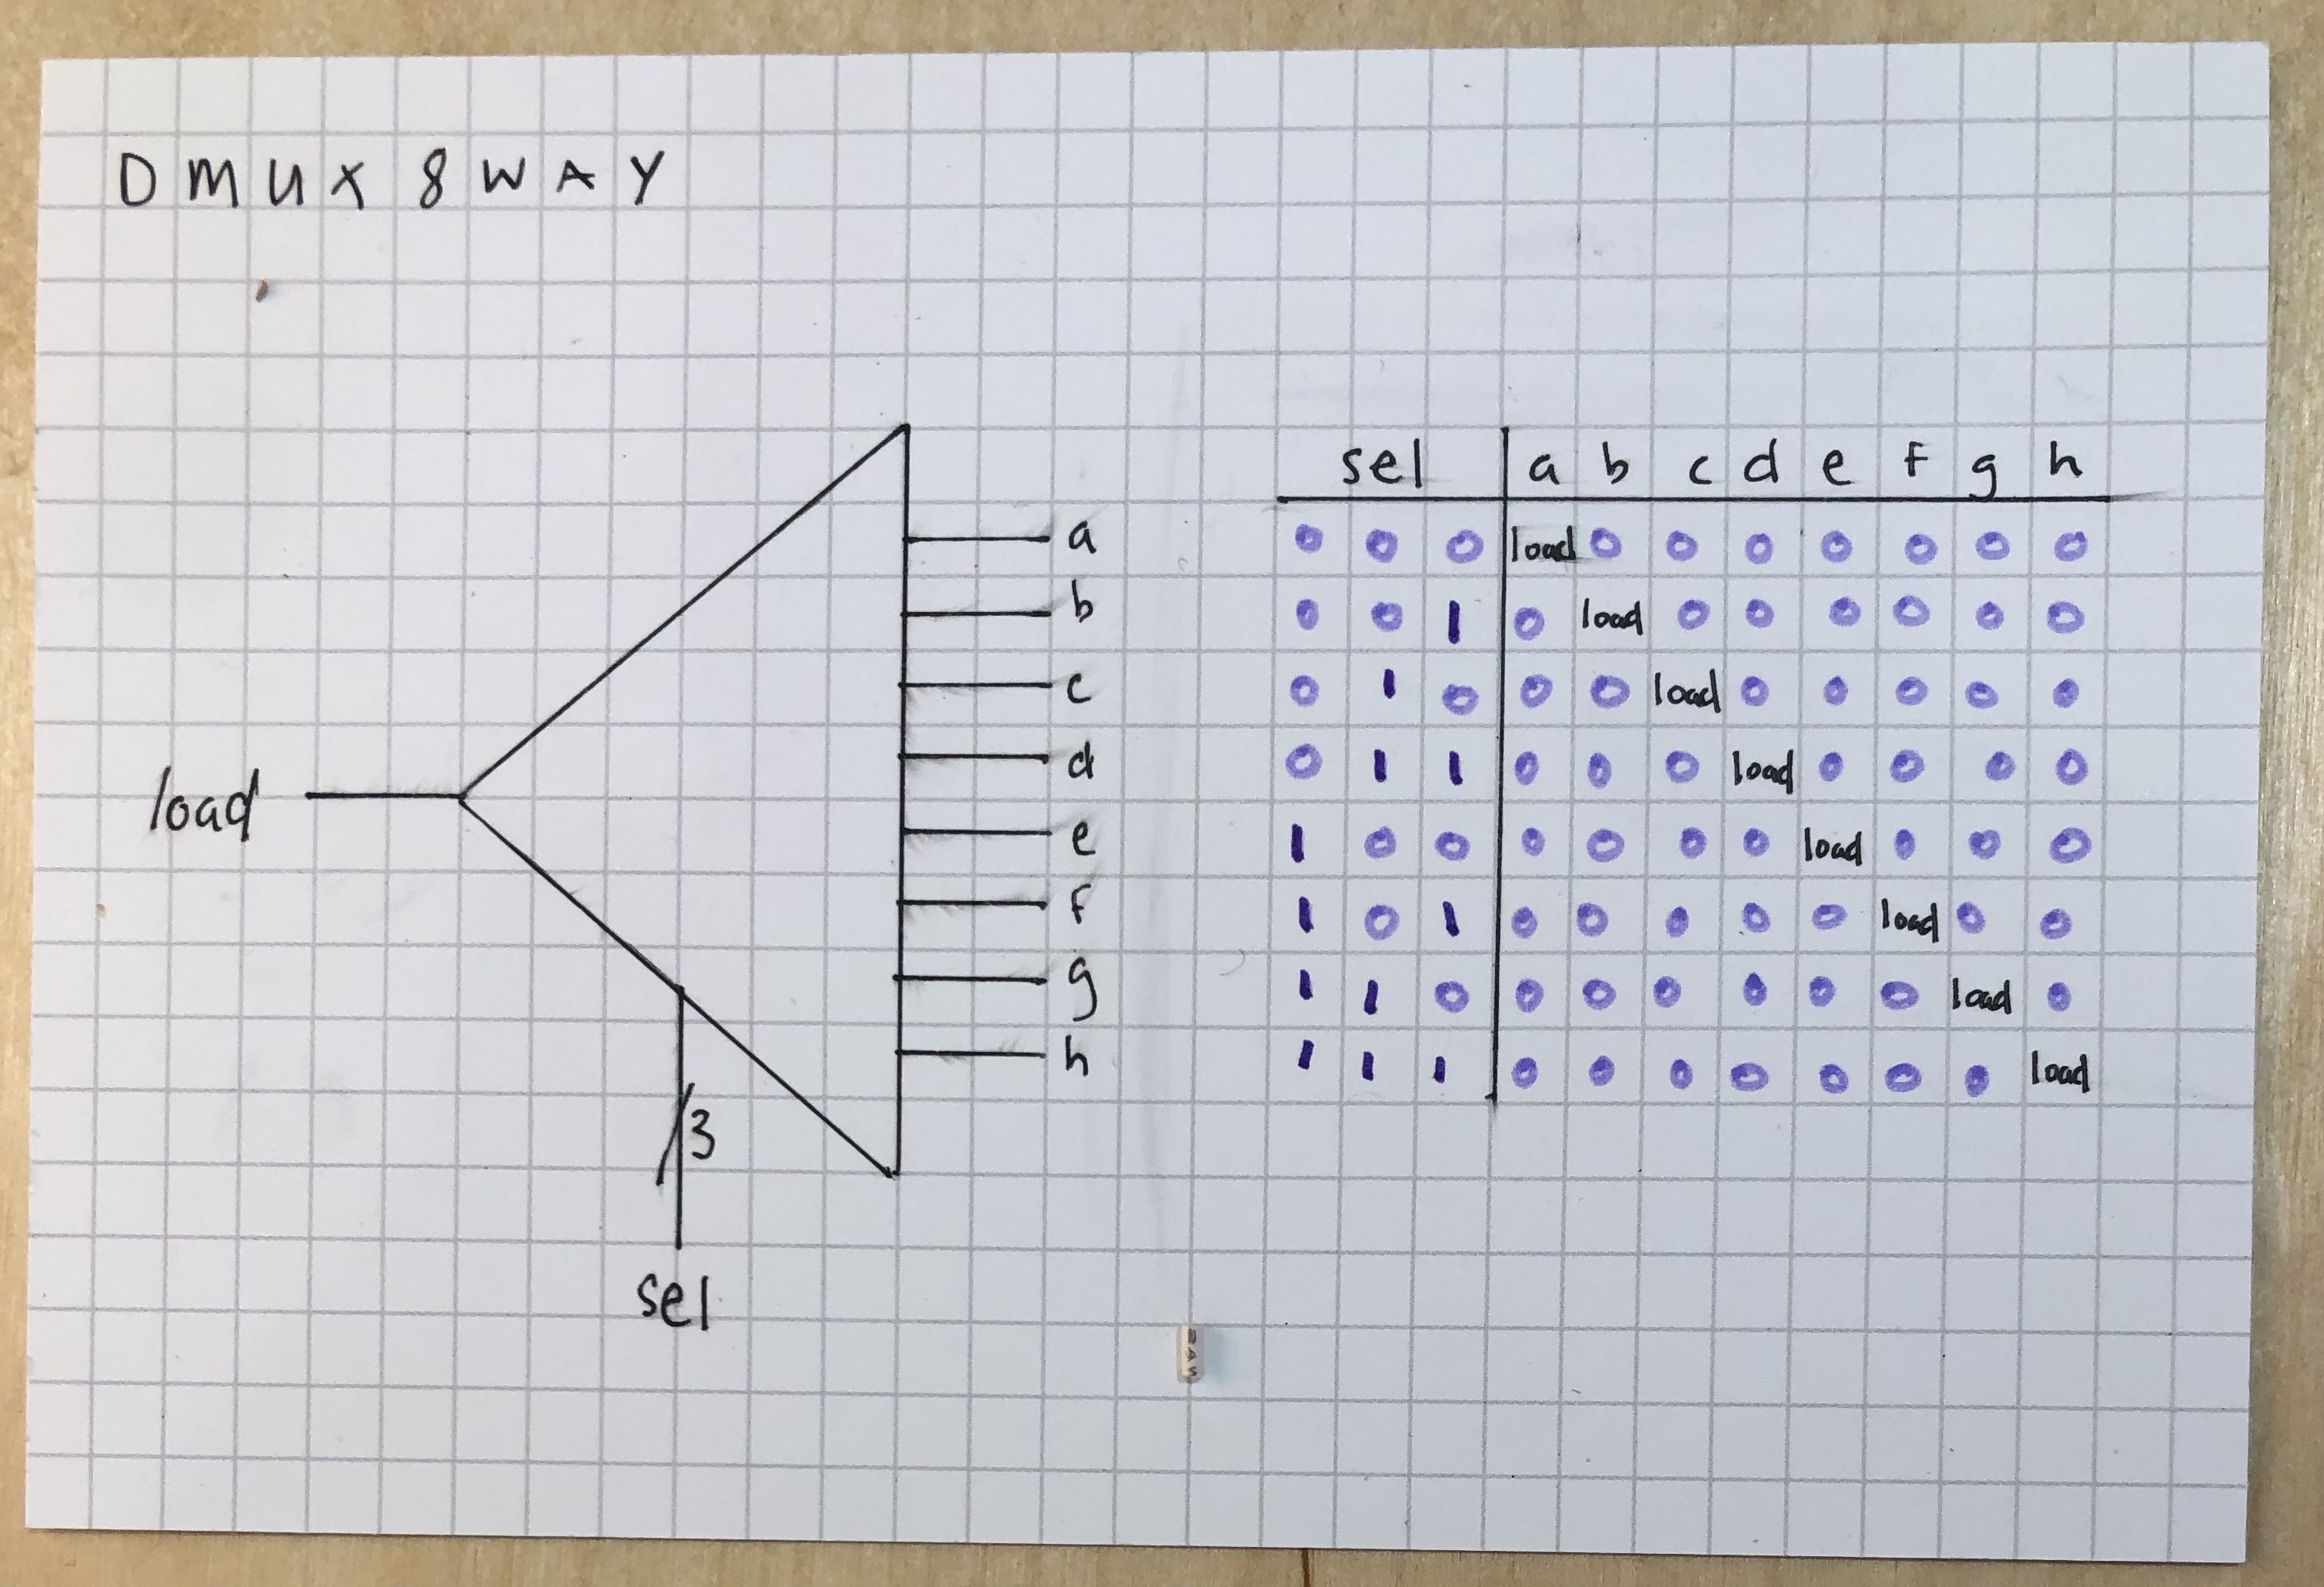 DMUX 8WAY
load
a
b
c
d
e
f
g
h
3
sel
sel a b c d e f g h
0 0 0 load 0 0 0 0 0 0 0
0 0 1 0 load 0 0 0 0 0 0
0 1 0 0 0 load 0 0 0 0 0
0 1 1 0 0 0 load 0 0 0 0
1 0 0 0 0 0 0 load 0 0 0
1 0 1 0 0 0 0 0 load 0 0
1 1 0 0 0 0 0 0 0 load 0
1 1 1 0 0 0 0 0 0 0 load